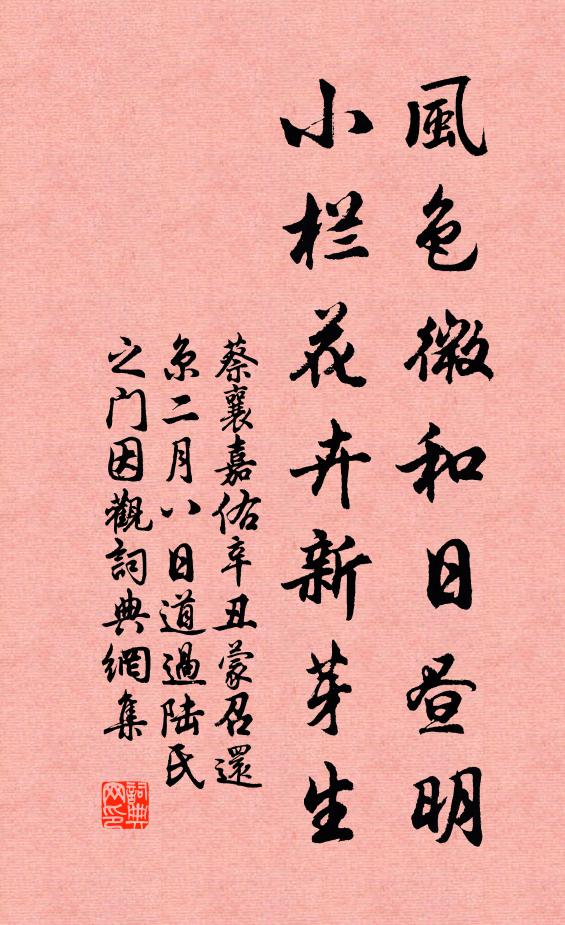 風色微和日昼明
小栏花卉新芽生
蔡襄嘉佑辛丑蒙召還
京二月八日道過陆氏
之门因觀詞典網集
詞典
网印